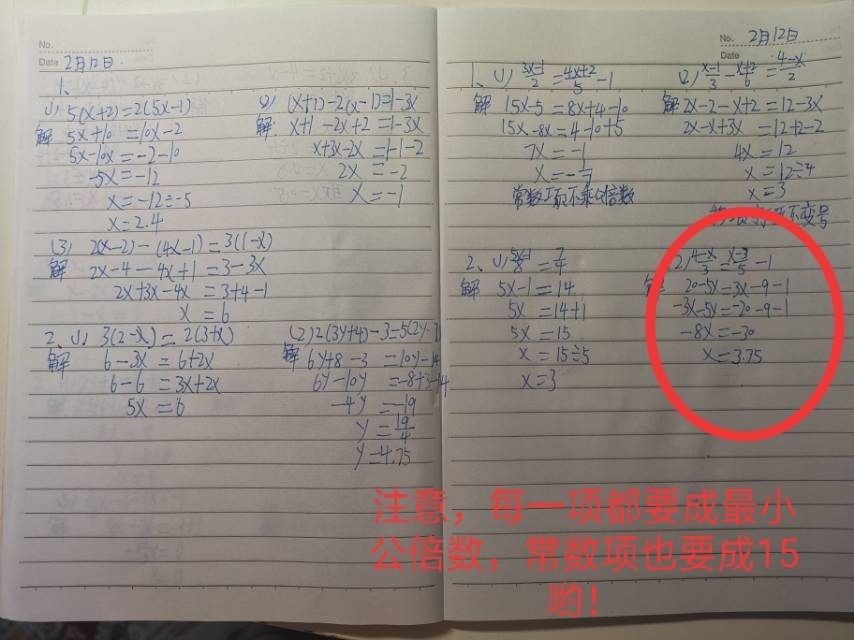 No.
Date 2月12日.
1、
(1) 5(x+2)=2(5x-1)
解 5x+10=10x-2
5x-10x=-2-10
-5x=-12
x=-12÷-5
x=2.4
(2) (x+1)-2(x-1)=1-3x
解 x+1-2x+2=1-3x
x+3x-2x=1-1-2
2x=-2
x=-1
(3) 2(x-2)-(4x-1)=3(1-x)
解 2x-4-4x+1=3-3x
2x+3x-4x=3+4-1
x=6
2、(1) 3(2-x)=2(3+x)
解 6-3x=6+2x
6-6=3x+2x
5x=6
(2) 2(3y+4)-3=5(2y-
解 6y+8-3=10y-14
6y-10y=-8+3-14
-4y=-19
y=19/4
y=4.75
No. 2月12日
Date
1、(1) 3x-1/2=4x+2/5-1
解 15x-5=8x+4-10
15x-8x=4-10+5
7x=-1
x=-1/7
常数项不乘公倍数
(2) x-1/3-x+2/6=4-x/2
解 2x-2-x+2=12-3x
2x-x+3x=12+2-2
4x=12
x=12÷4
x=3
不变号
2、(1) 5x-1/8=7/4
解 5x-1=14
5x=14+1
5x=15
x=15÷5
x=3
2) 4-x/3=x-3/5-1
解 20-5x=3x-9-1
-3x-5x=-20-9-1
-8x=-30
x=3.75
注意，每一项都要成最小
公倍数，常数项也要成15
哟！